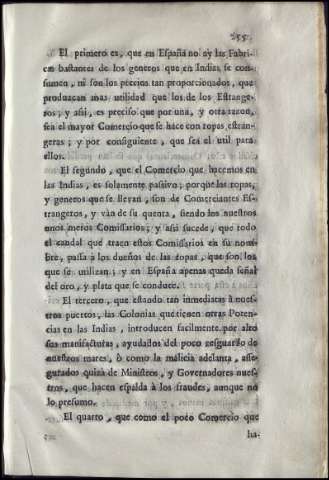 255.
El primero es, que en España no ay las Fabri-
cas bastantes de los generos que en Indias se con-
sumen, ni son los precios tan proporcionados, que
produzcan mas utilidad que los de los Estrange-
ros; y assi, es preciso que por una, y otra razon,
sea el mayor Comercio que se hace con ropas estran-
geras; y por consiguiente, que sea el util para
ellos.
El segundo, que el Comercio que hacemos en
las Indias, es solamente passivo; porque las ropas,
y generos que se llevan, son de Comerciantes Es-
trangeros, y vàn de su quenta, siendo los nuestros
unos meros Comissarios; y assi sucede, que todo
el caudal que traen estos Comissarios en su nom-
bre, passa à los dueños de las ropas, que son los
que se utilizan; y en España apenas queda señal
del oro, y plata que se conduce.
El tercero, que estando tan inmediatas à nues-
tros puertos, las Colonias que tienen otras Poten-
cias en las Indias, introducen facilmente por alto
sus manifacturas, ayudados del poco resguardo de
nuestros mares, ò como la malicia adelanta, asse-
gurados quizà de Ministros, y Governadores nues-
tros, que hacen espalda à los fraudes, aunque no
lo presumo.
El quarto, que como el poco Comercio que
ha-